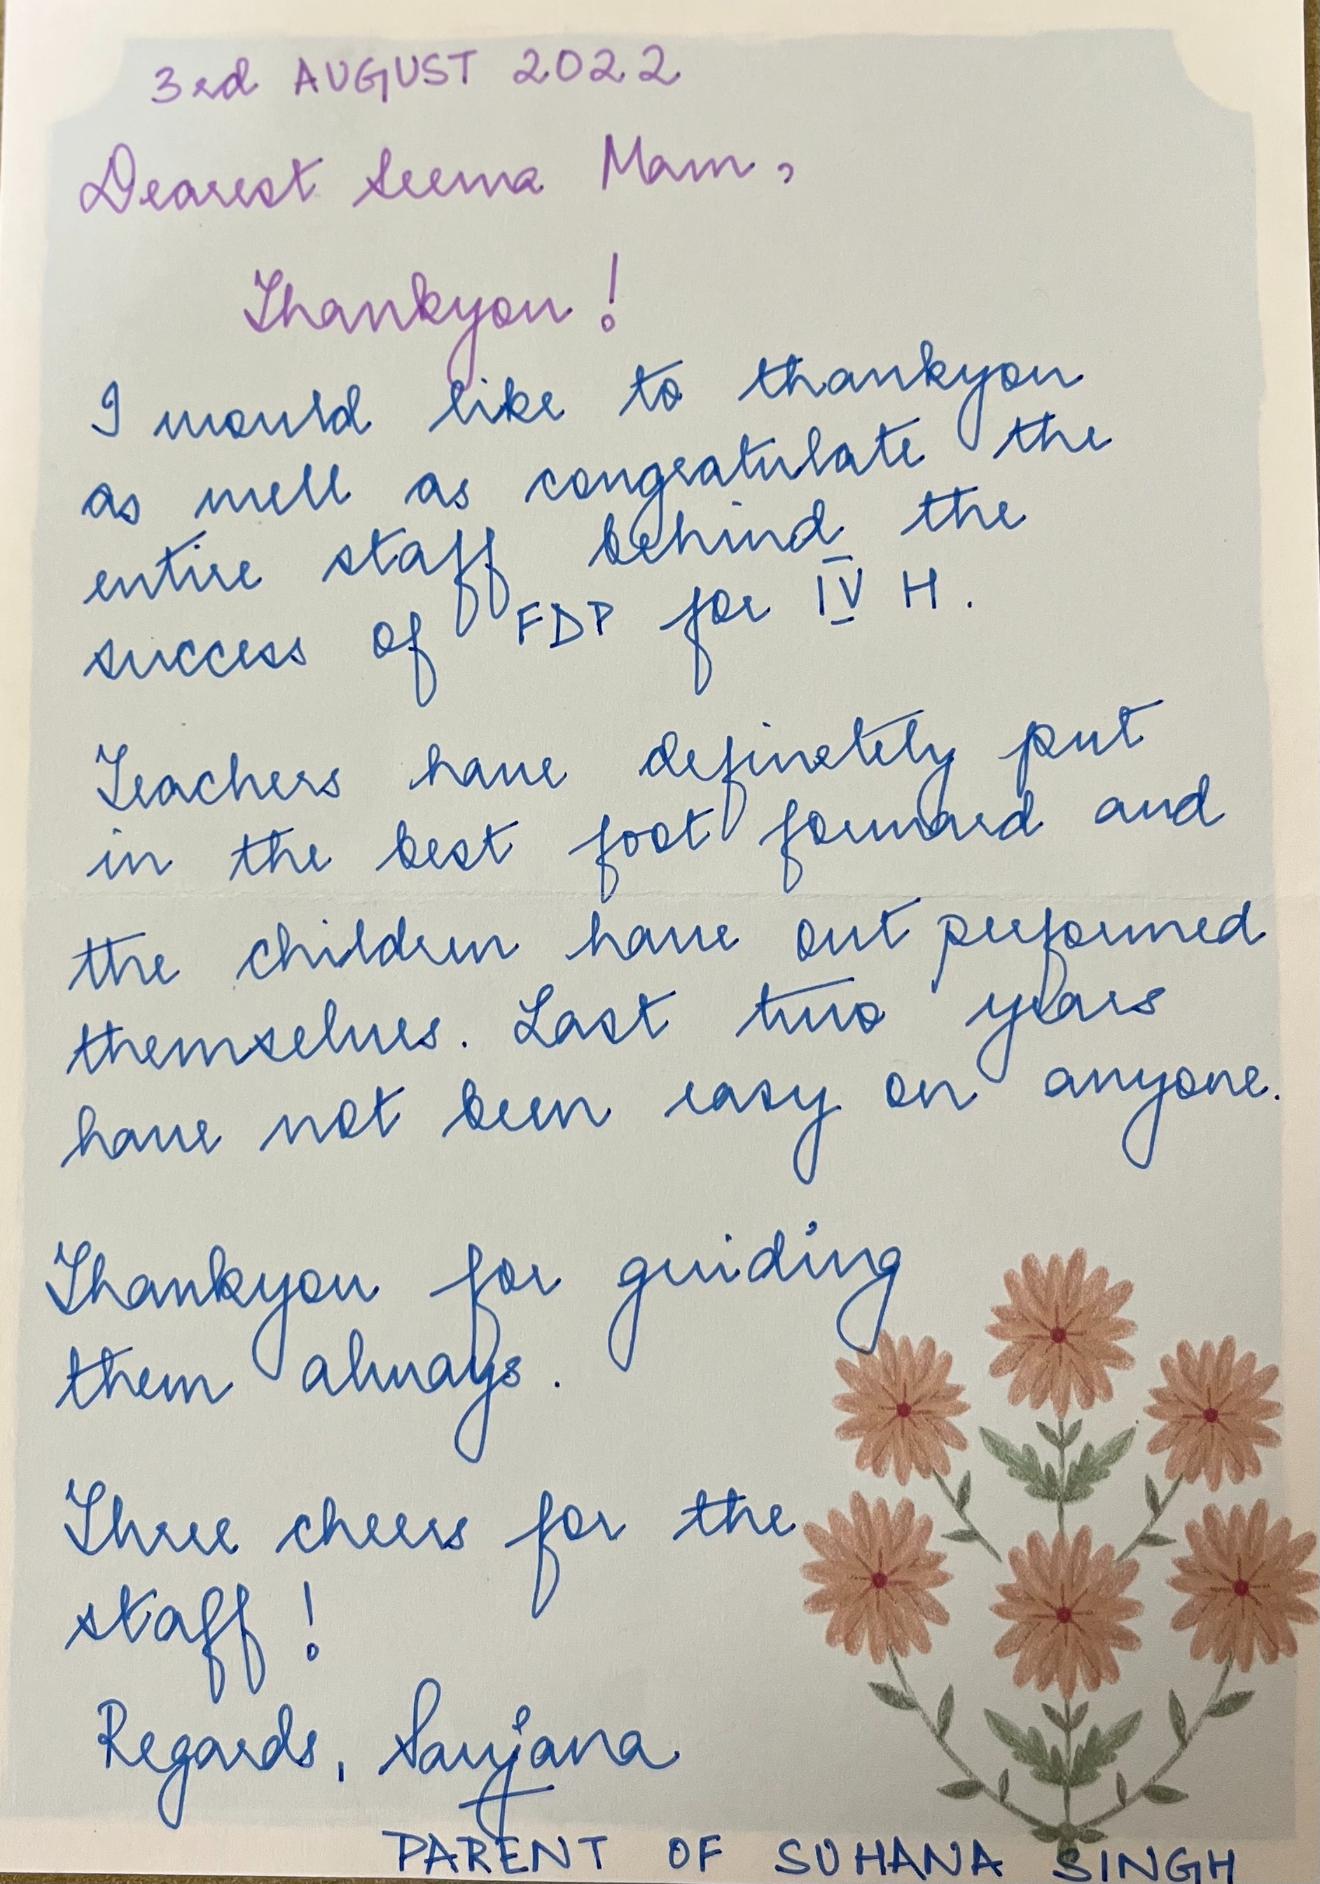 3rd AUGUST 2022
Dearest Seema Mam,
Thankyou!
I would like to thankyou
as well as congratulate the
entire staff behind the
success of FDP for IV H.
Teachers have definetely put
in the best foot forward and
the children have out performed
themselves. Last two years
have not been easy on anyone.
Thankyou for guiding
them always.
Three cheers for the
staff!
Regards, Sanjana
PARENT OF SUHANA SINGH